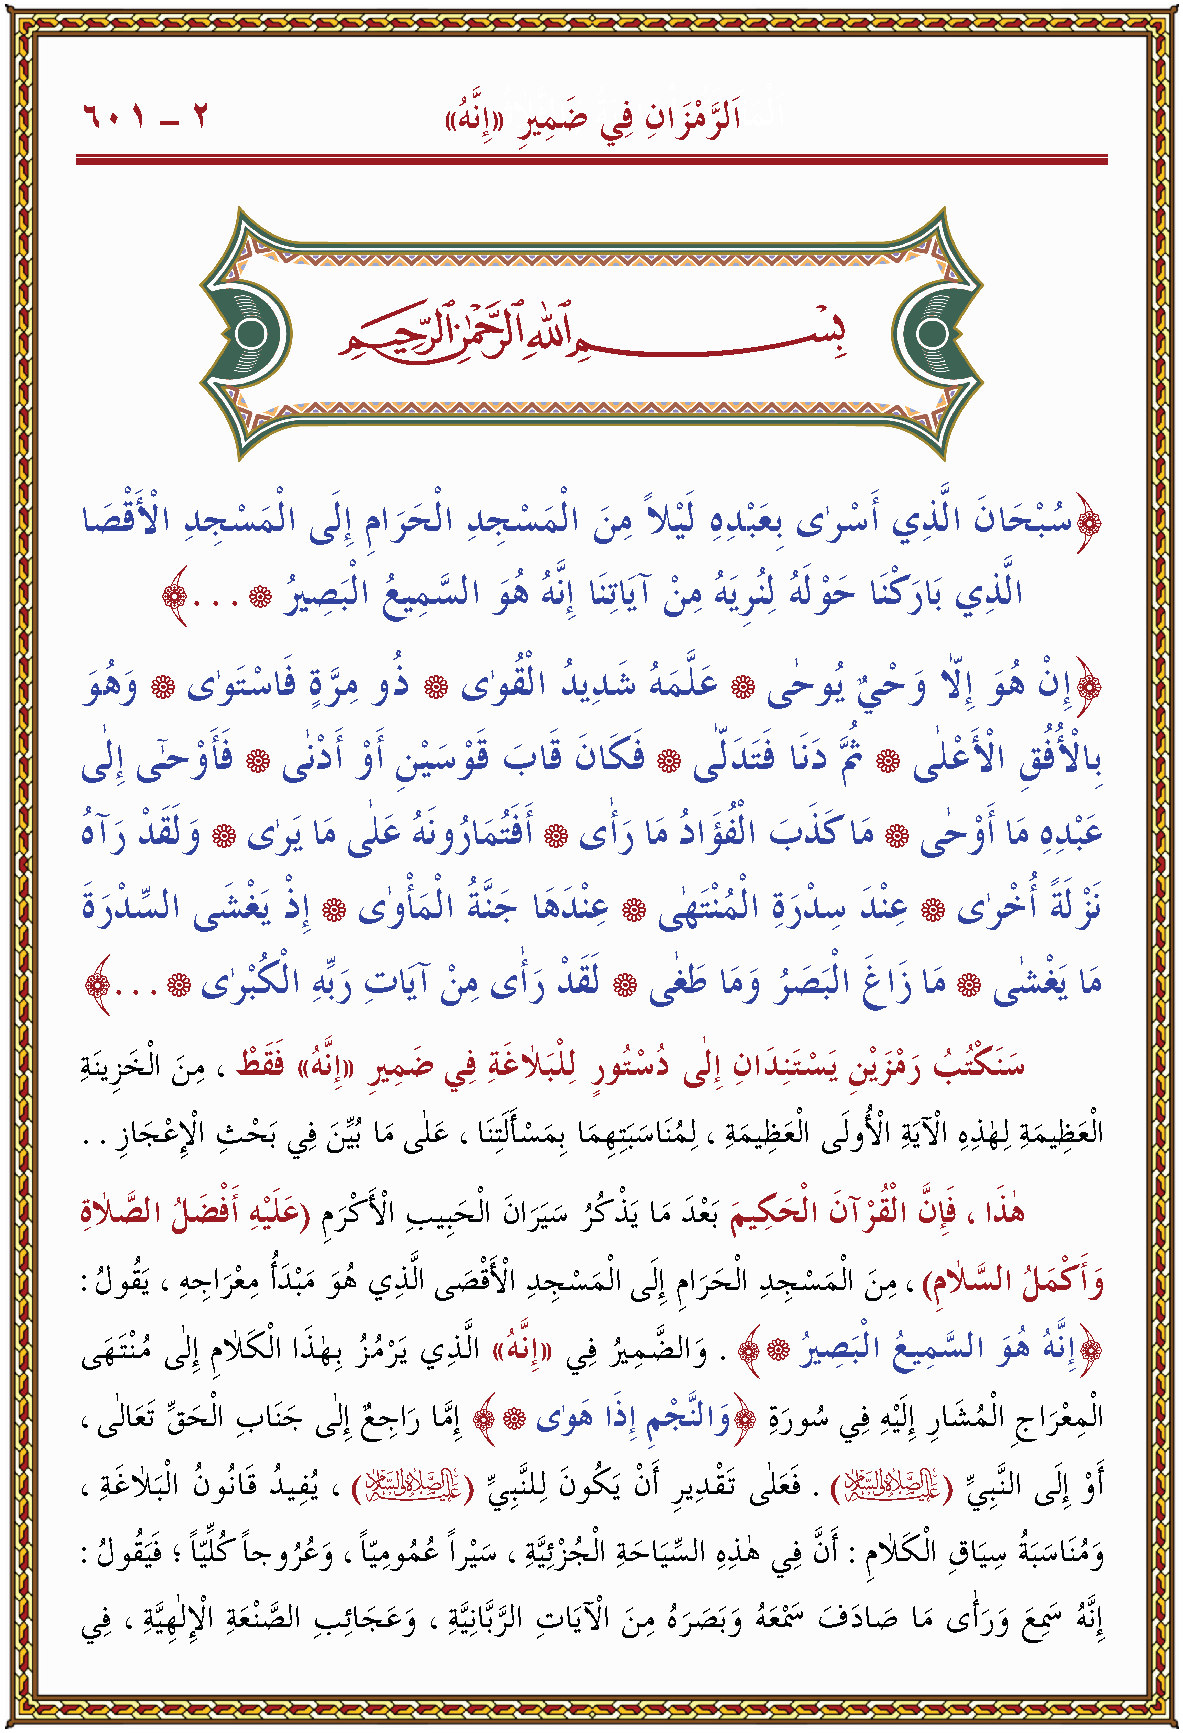 اَلرَّمْزَانِ فِي ضَمِيرِ «إِنَّهُ» ٢ - ٦٠١
بِسْمِ ٱللهِ ٱلرَّحْمٰنِ ٱلرَّحِيمِ
﴿سُبْحَانَ الَّذِي أَسْرٰى بِعَبْدِهِ لَيْلاً مِنَ الْمَسْجِدِ الْحَرَامِ إِلَى الْمَسْجِدِ الْأَقْصَا
الَّذِي بَارَكْنَا حَوْلَهُ لِنُرِيَهُ مِنْ آيَاتِنَا إِنَّهُ هُوَ السَّمِيعُ الْبَصِيرُ ۞ . . . ﴾
﴿إِنْ هُوَ إِلاَّ وَحْيٌ يُوحٰى ۞ عَلَّمَهُ شَدِيدُ الْقُوٰى ۞ ذُو مِرَّةٍ فَاسْتَوٰى ۞ وَهُوَ
بِالْأُفُقِ الْأَعْلٰى ۞ ثُمَّ دَنَا فَتَدَلّٰى ۞ فَكَانَ قَابَ قَوْسَيْنِ أَوْ أَدْنٰى ۞ فَأَوْحٰٓى إِلٰى
عَبْدِهِ مَا أَوْحٰى ۞ مَا كَذَبَ الْفُؤَادُ مَا رَأٰى ۞ أَفَتُمَارُونَهُ عَلٰى مَا يَرٰى ۞ وَلَقَدْ رَآهُ
نَزْلَةً أُخْرٰى ۞ عِنْدَ سِدْرَةِ الْمُنْتَهٰى ۞ عِنْدَهَا جَنَّةُ الْمَأْوٰى ۞ إِذْ يَغْشَى السِّدْرَةَ
مَا يَغْشٰى ۞ مَا زَاغَ الْبَصَرُ وَمَا طَغٰى ۞ لَقَدْ رَأٰى مِنْ آيَاتِ رَبِّهِ الْكُبْرٰى ۞ . . . ﴾
سَنَكْتُبُ رَمْزَيْنِ يَسْتَنِدَانِ إِلٰى دُسْتُورٍ لِلْبَلاٰغَةِ فِي ضَمِيرِ «إِنَّهُ» فَقَطْ ، مِنَ الْخَزِينَةِ
الْعَظِيمَةِ لِهٰذِهِ الْآيَةِ الْأُولَى الْعَظِيمَةِ ، لِمُنَاسَبَتِهِمَا بِمَسْأَلَتِنَا ، عَلٰى مَا بُيِّنَ فِي بَحْثِ الْإِعْجَازِ . .
هٰذَا ، فَإِنَّ الْقُرْآنَ الْحَكِيمَ بَعْدَ مَا يَذْكُرُ سَيَرَانَ الْحَبِيبِ الْأَكْرَمِ (عَلَيْهِ أَفْضَلُ الصَّلاٰةِ
وَأَكْمَلُ السَّلاٰمِ) ، مِنَ الْمَسْجِدِ الْحَرَامِ إِلَى الْمَسْجِدِ الْأَقْصَى الَّذِي هُوَ مَبْدَأُ مِعْرَاجِهِ ، يَقُولُ :
﴿إِنَّهُ هُوَ السَّمِيعُ الْبَصِيرُ ۞﴾ . وَالضَّمِيرُ فِي «إِنَّهُ» الَّذِي يَرْمُزُ بِهٰذَا الْكَلاٰمِ إِلٰى مُنْتَهَى
الْمِعْرَاجِ الْمُشَارِ إِلَيْهِ فِي سُورَةِ ﴿وَالنَّجْمِ إِذَا هَوٰى ۞﴾ إِمَّا رَاجِعٌ إِلٰى جَنَابِ الْحَقِّ تَعَالٰى ،
أَوْ إِلَى النَّبِيِّ (عَلَيْهِ الصَّلَاةُ وَالسَّلَامُ) . فَعَلٰى تَقْدِيرِ أَنْ يَكُونَ لِلنَّبِيِّ (عَلَيْهِ الصَّلَاةُ وَالسَّلَامُ) ، يُفِيدُ قَانُونُ الْبَلاٰغَةِ ،
وَمُنَاسَبَةُ سِيَاقِ الْكَلاٰمِ : أَنَّ فِي هٰذِهِ السِّيَاحَةِ الْجُزْئِيَّةِ ، سَيْراً عُمُومِيّاً ، وَعُرُوجاً كُلِّيّاً ؛ فَيَقُولُ :
إِنَّهُ سَمِعَ وَرَأٰى مَا صَادَفَ سَمْعَهُ وَبَصَرَهُ مِنَ الْآيَاتِ الرَّبَّانِيَّةِ ، وَعَجَائِبِ الصَّنْعَةِ الْإِلٰهِيَّةِ ، فِي